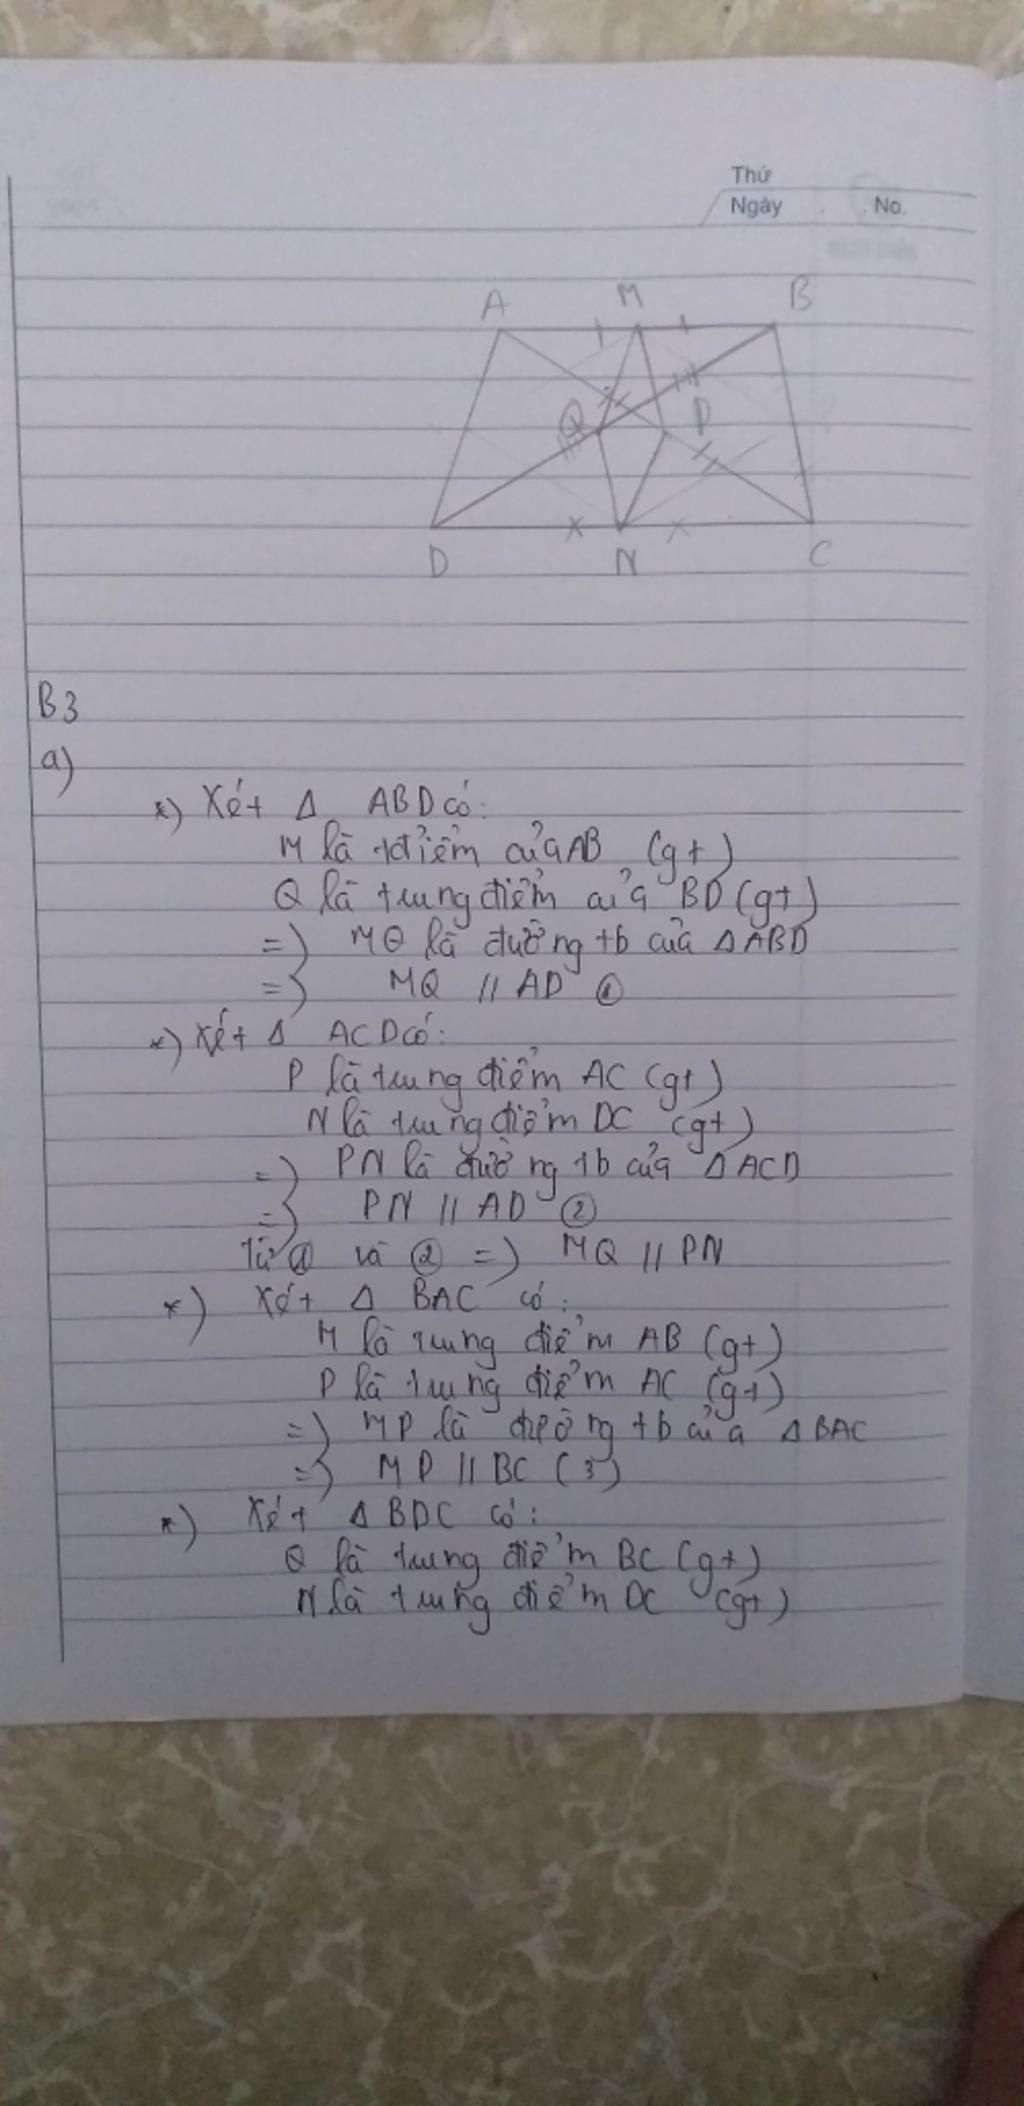 Thứ
Ngày No.
A M B
Q P
D N C
B3
a)
*) Xét Δ ABD có:
M là tđiểm của AB (gt)
Q là trung điểm của BD (gt)
=) MQ là đường tb của Δ ABD
=) MQ // AD ①
*) Xét Δ ACD có:
P là trung điểm AC (gt)
N là trung điểm DC (gt)
=) PN là đường tb của Δ ACD
=) PN // AD ②
Từ ① và ② =) MQ // PN
*) Xét Δ BAC có:
M là trung điểm AB (gt)
P là trung điểm AC (gt)
=) MP là đường tb của Δ BAC
=) MP // BC (3)
*) Xét Δ BDC có:
Q là trung điểm BC (gt)
N là trung điểm DC (gt)